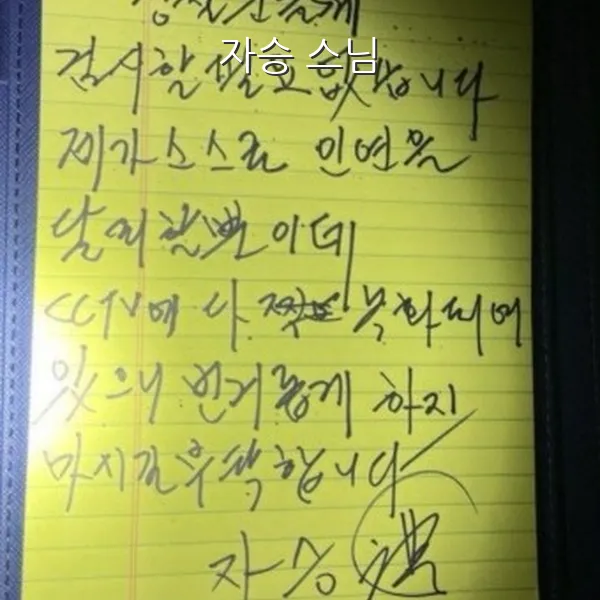 경찰분들께
자승 스님
검시할 필요 없습니다
제가 스스로 인연을
달리할 뿐인데
CCTV에 다 녹화되어
있으니 번거롭게 하지
마시길 부탁합니다
자승